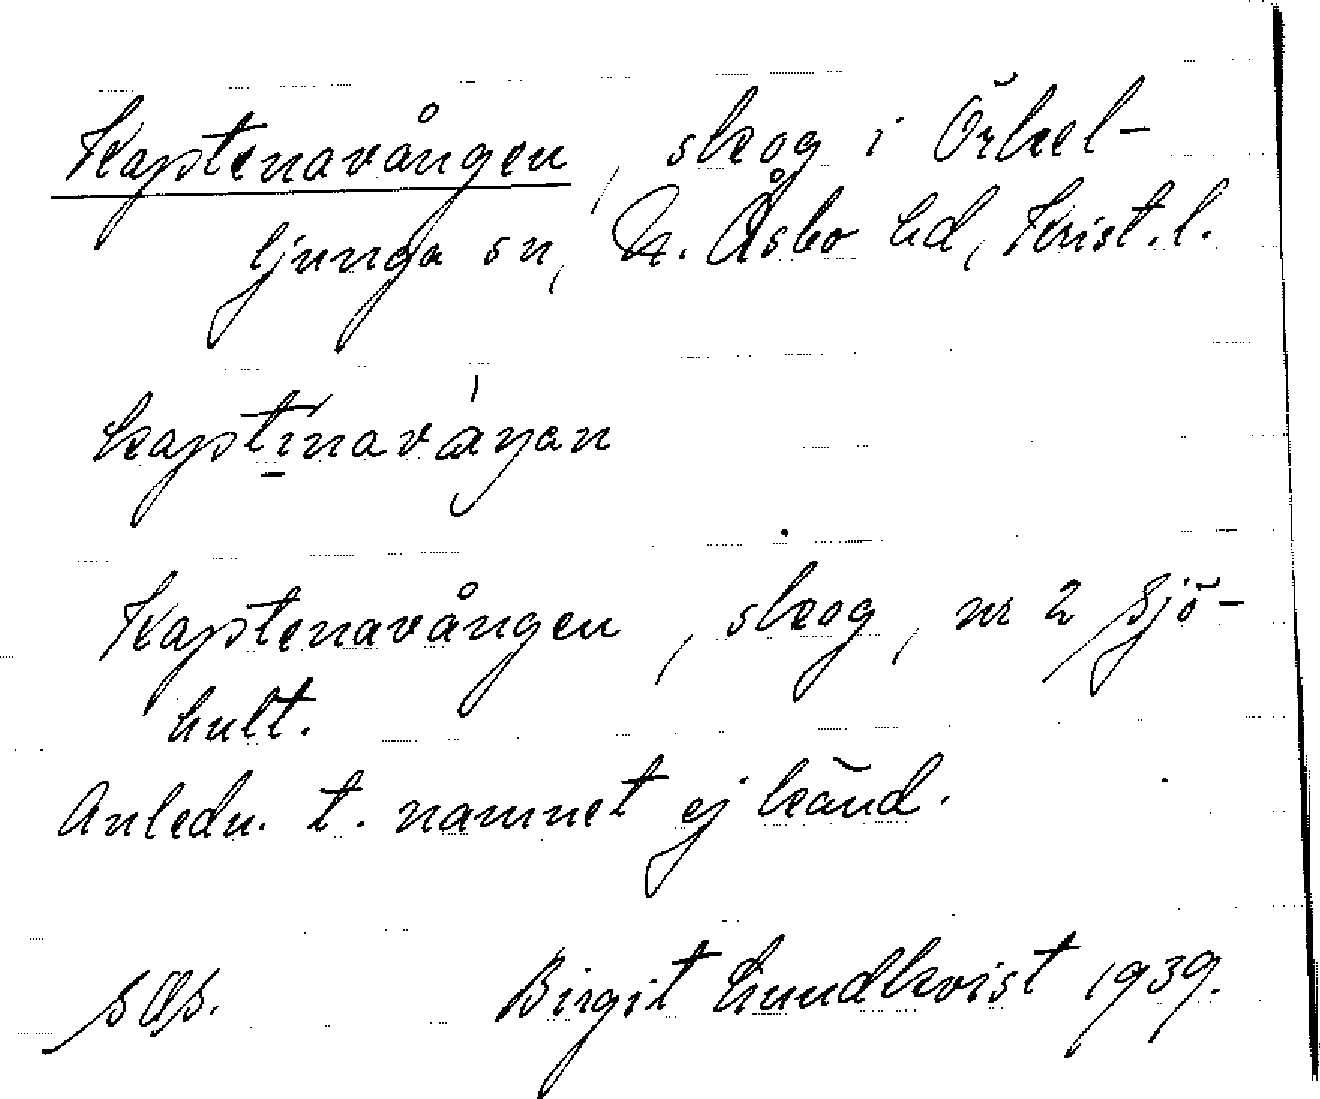 Kaptenavången, skog i Örkel-
ljunga sn, N. Åsbo hd, Krist. l.
Kaptenavången, skog, nr 2 Sjö-
hult.
Anledn. t. namnet ej känd.
Birgit Lundkvist 1939.